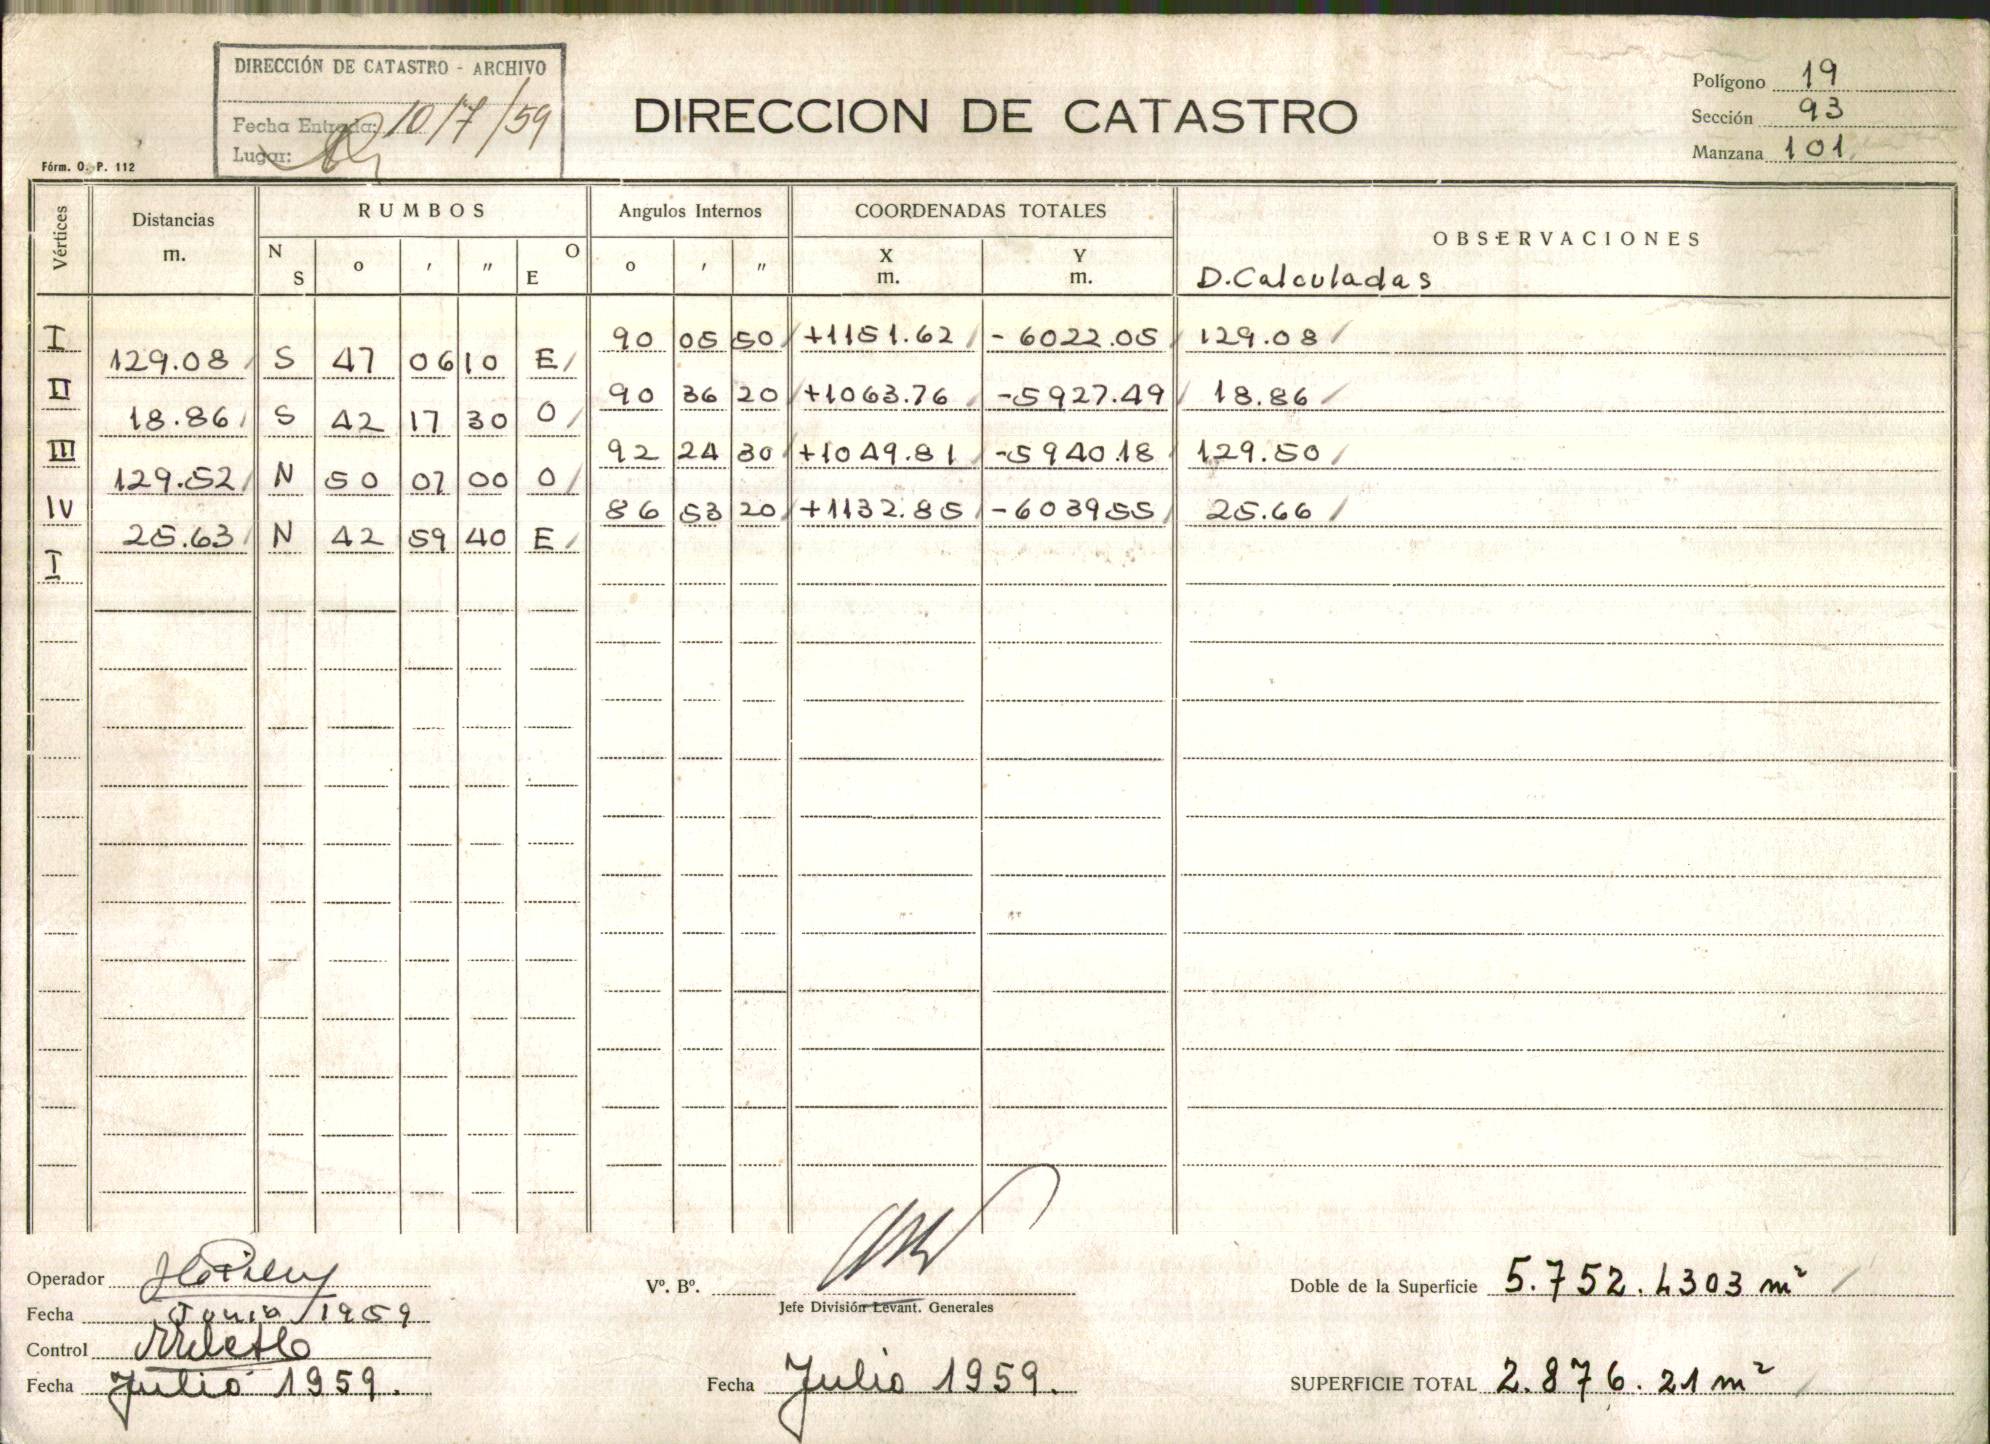 DIRECCIÓN DE CATASTRO - ARCHIVO
Fecha Entrada: 10/7/59
Lugar:
DIRECCION DE CATASTRO
Polígono 19
Sección 93
Manzana 101
Fórm. O. P. 112
Vértices
Distancias m.
RUMBOS
N S ° ′ ″ O E
Angulos Internos
° ′ ″
COORDENADAS TOTALES
X m. Y m.
OBSERVACIONES
D. Calculadas
I 90 05 50 +1151.62 - 6022.05 129.08
129.08 S 47 06 10 E
II 90 36 20 +1063.76 -5927.49 18.86
18.86 S 42 17 30 O
III 92 24 30 +1049.81 -5940.18 129.50
129.52 N 50 07 00 O
IV 86 53 20 +1132.85 -603955 25.66
25.63 N 42 59 40 E
I
Operador
Fecha Junio/1959
Control
Fecha Julio 1959.
Vº. Bº.
Jefe División Levant. Generales
Fecha Julio 1959.
Doble de la Superficie 5.752.4303 m²
SUPERFICIE TOTAL 2.876.21 m²